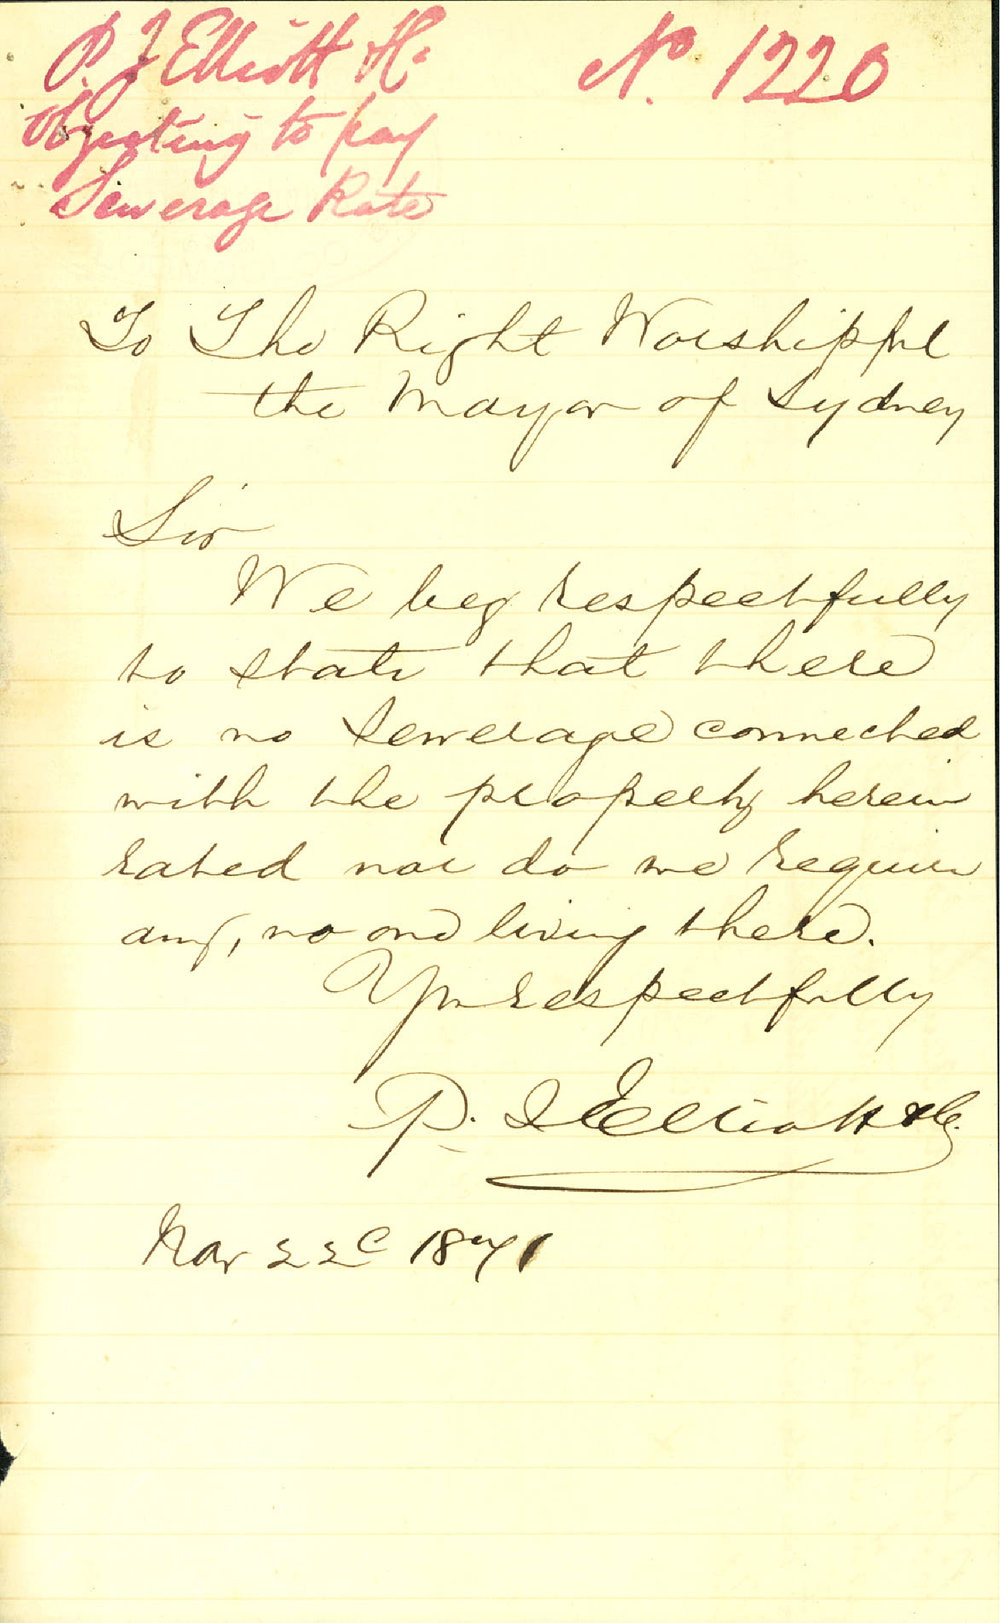 P. J Elliott & Co
No. 1220
Objecting to pay
Sewerage Rate
To The Right Worshipful
the Mayor of Sydney
Sir
We beg respectfully
to state that there
is no Sewerage connected
with the property herein
rated nor do we require
any, no one living there.
Yrs respectfully
P. J Elliott & Co.
Nov 22d 1871